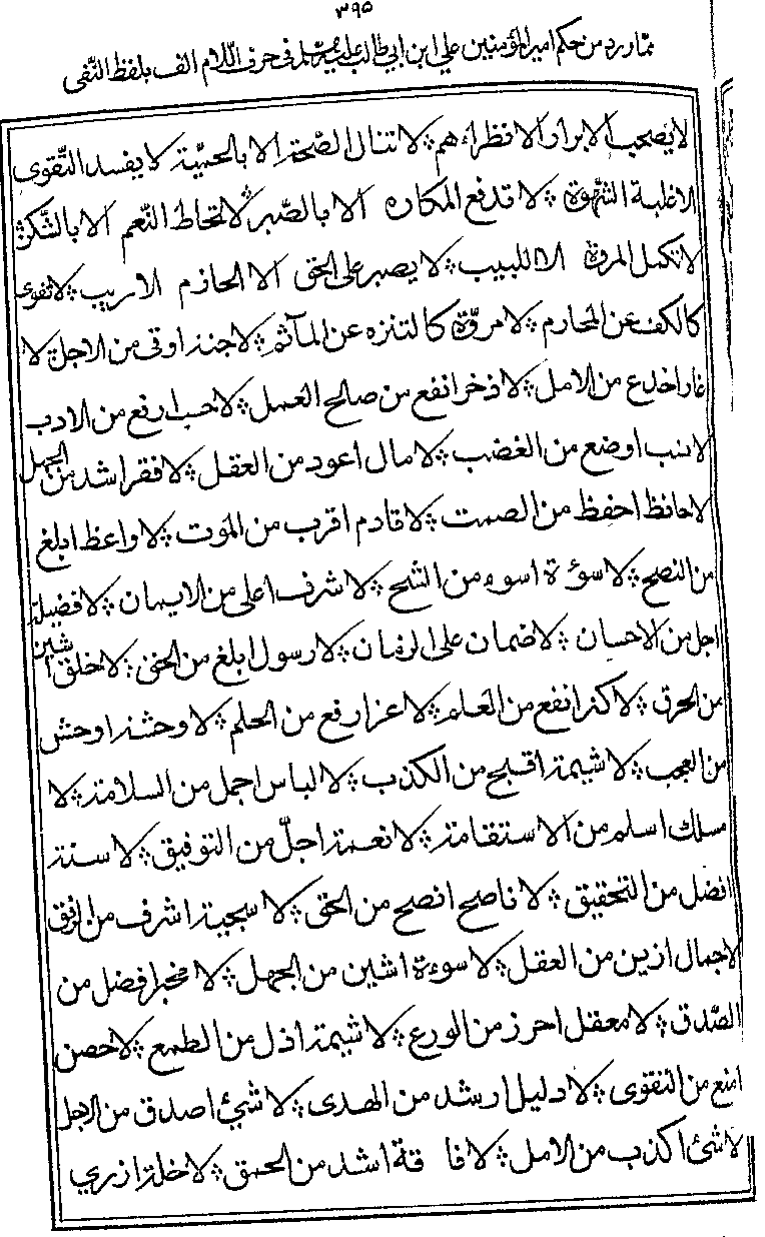 ٣٩٥
مما ورد من حكم امير المؤمنين علي ابن ابي طالب عليه في حرف اللام الف بلفظ النفى
لا يصحب الابرار الا نظراءهم لا تنال الصّحة الا بالحميّة لا يفسد التّقوى
الا غلبة الشّهوة لا تدفع المكاره الا بالصّبر لا تحاط النّعم الا بالشّكر
لا تكمل المروّة الا للبيب لا يصبر على الحق الا الحازم الاريب لا تقوى
كالكف عن المحارم لا مروّة كالتنزه عن المآثم لا جنة اوقى من الاجل لا
غار اخدع من الامل لا ذخر انفع من صالح العمل لا حسب ارفع من الادب
لا نسب اوضع من الغضب لا مال اعود من العقل لا فقر اشد من الجهل
لا حافظ احفظ من الصمت لا قادم اقرب من الموت لا واعظ ابلغ
من النصح لا سوءة اسوء من الشح لا شرف اعلى من الايمان لا فضيلة
اجل من الاحسان لا ضمان على الزمان لا رسول ابلغ من الحق لا خلق اشين
من الخرق لا كنز انفع من العلم لا عز ارفع من الحلم لا وحشة اوحش
من العجب لا شيمة اقبح من الكذب لا لباس اجمل من السلامة لا
مسلك اسلم من الاستقامة لا نعمة اجلّ من التوفيق لا سنة
افضل من التحقيق لا ناصح انصح من الحق لا سجية اشرف من الرفق
لا جمال ازين من العقل لا سوءة اشين من الجهل لا مخبر افضل من
الصّدق لا معقل احرز من الورع لا شيمة اذل من الطمع لا حصن
امنع من التقوى لا دليل ارشد من الهدى لا شيئ اصدق من الاجل
لا شئ اكذب من الامل لا فاقة اشد من الحمق لا خلة ازري